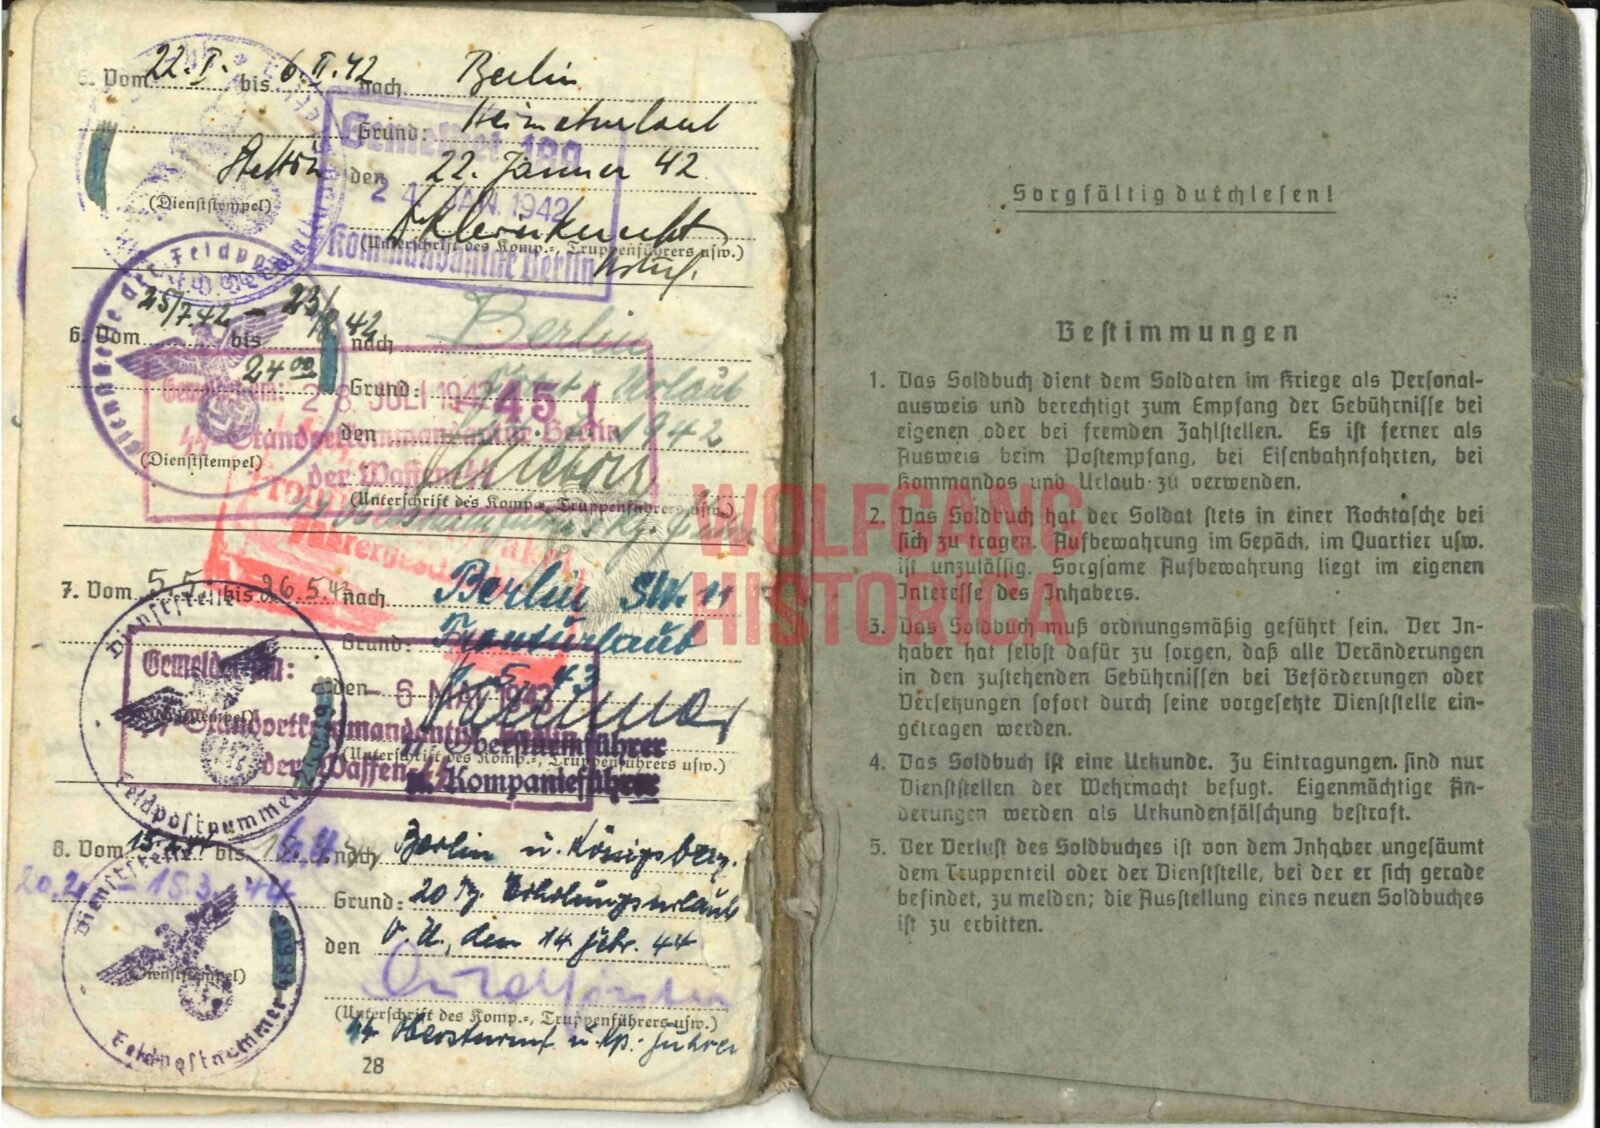 5. Vom 22.I. bis 6.II.42 nach Berlin
Grund: Heimaturlaub
den 22. Jänner 42
(Dienststempel)
(Unterschrift des Komp.-, Truppenführers usw.)
Gemeldet
24. JAN. 1942
Kommandantur Berlin
6. Vom 25/7.42 – bis 42 nach Berlin
24⁰⁰
Grund: Urlaub
den 1942
(Dienststempel)
(Unterschrift des Komp.-, Truppenführers usw.)
Gemeldet am: 28. JULI 1942 451
Standortkommandantur Berlin
der Waffen-SS
7. Vom 5.5. bis 26.5.43 nach Berlin SW. 11
Grund: Fronturlaub
den 5. 43
(Dienststempel)
(Unterschrift des Komp.-, Truppenführers usw.)
SS Obersturmführer
u. Kompanieführer
Gemeldet am:
- 6 MAI 1943
Standortkommandantur Berlin
der Waffen-SS
Dienststelle
Feldpostnummer
8. Vom bis nach Berlin u. Königsberg.
20.2. – 15.3.44
Grund: 20 Tg. Erholungsurlaub
den O.U., dem 14. Febr. 44
(Dienststempel)
(Unterschrift des Komp.-, Truppenführers usw.)
SS Obersturmf. u. Kp. Führer
Dienststelle
Feldpostnummer
28
Sorgfältig durchlesen!
Bestimmungen
1. Das Soldbuch dient dem Soldaten im Kriege als Personal-
ausweis und berechtigt zum Empfang der Gebührnisse bei
eigenen oder bei fremden Zahlstellen. Es ist ferner als
Ausweis beim Postempfang, bei Eisenbahnfahrten, bei
Kommandos und Urlaub zu verwenden.
2. Das Soldbuch hat der Soldat stets in einer Rocktasche bei
sich zu tragen. Aufbewahrung im Gepäck, im Quartier usw.
ist unzulässig. Sorgsame Aufbewahrung liegt im eigenen
Interesse des Inhabers.
3. Das Soldbuch muß ordnungsmäßig geführt sein. Der In-
haber hat selbst dafür zu sorgen, daß alle Veränderungen
in den zustehenden Gebührnissen bei Beförderungen oder
Versetzungen sofort durch seine vorgesetzte Dienststelle ein-
getragen werden.
4. Das Soldbuch ist eine Urkunde. Zu Eintragungen sind nur
Dienststellen der Wehrmacht befugt. Eigenmächtige Än-
derungen werden als Urkundenfälschung bestraft.
5. Der Verlust des Soldbuches ist von dem Inhaber ungesäumt
dem Truppenteil oder der Dienststelle, bei der er sich gerade
befindet, zu melden; die Ausstellung eines neuen Soldbuches
ist zu erbitten.
WOLFGANG
HISTORICA